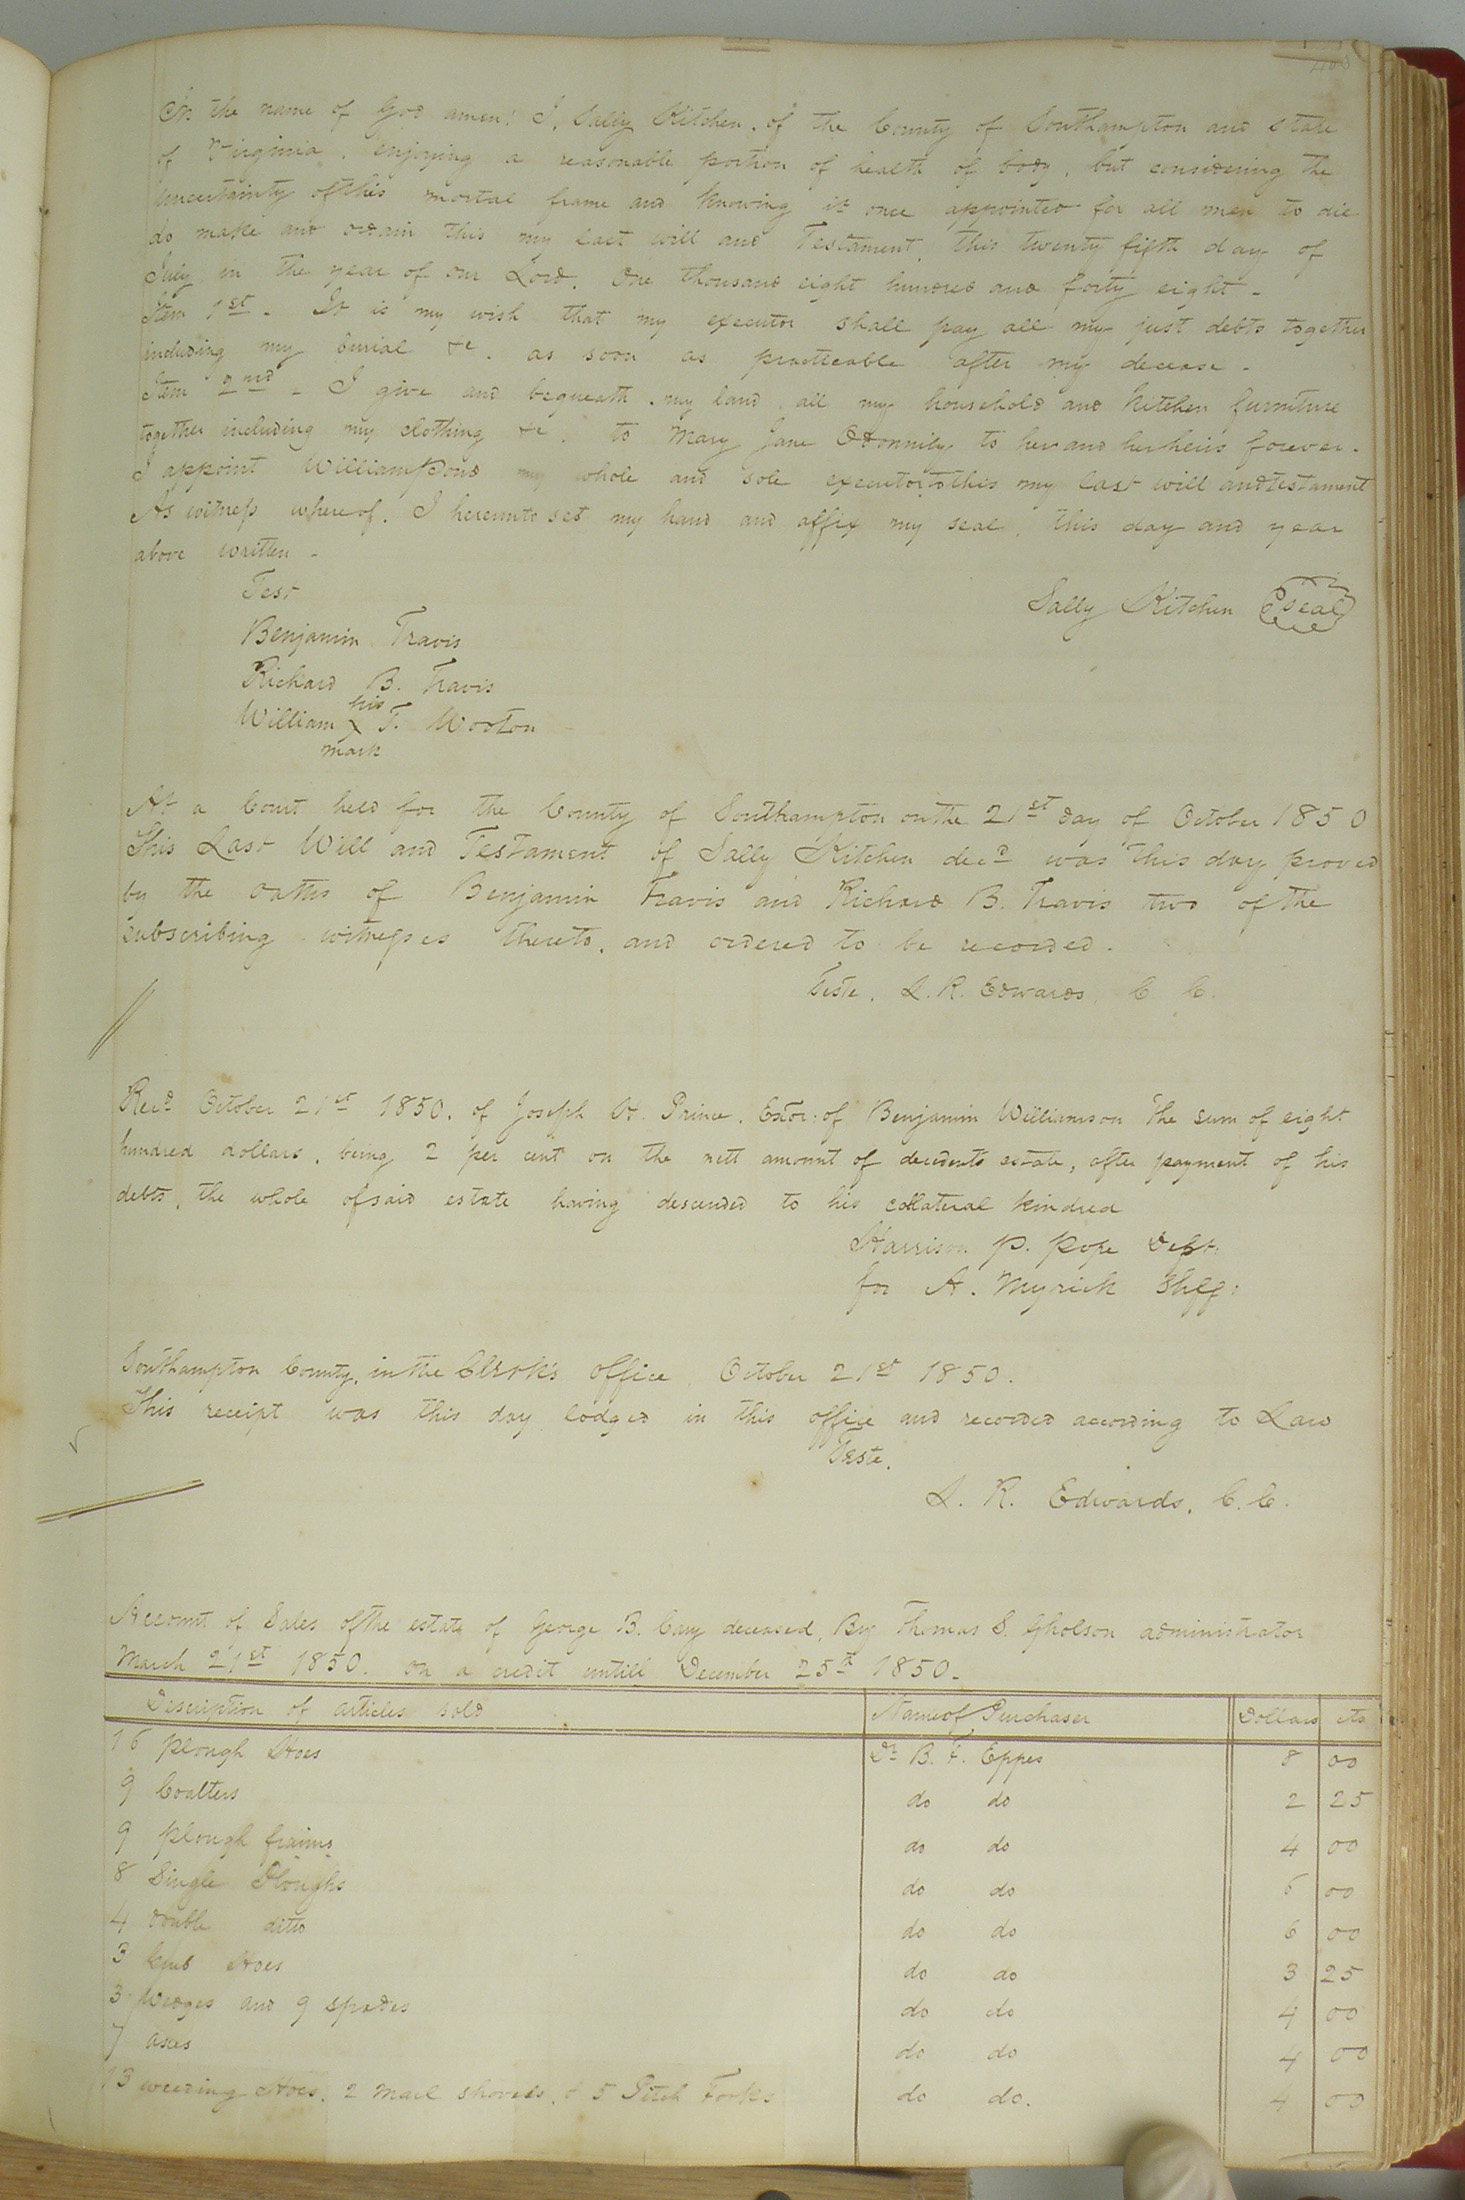 In the name of God amen! I, Sally Kitchen, of the County of Southampton and State
of Virginia, enjoying a reasonable portion of health of body, but considering the
uncertainty of this mortal frame and knowing it once appointed for all men to die
do make and ordain this my last will and Testament, this twenty fifth day of
July in the year of our Lord, One thousand eight hundred and forty eight -
Item 1st - It is my wish that my executor shall pay all my just debts together
including my burial &c. as soon as practicable after my decease -
Item 2nd - I give and bequeath my land, all my household and kitchen furniture
together including my clothing &c. to Mary Jane to her and her heirs forever -
I appoint William Pond my whole and sole executor to this my last will and testament
As witness whereof, I hereunto set my hand and affix my seal, this day and year
above written -
Test
Sally Kitchen seal
Benjamin Travis
Richard B. Travis
his
William X T. Worton
mark
At a Court held for the County of Southampton on the 21st day of October 1850
This Last Will and Testament of Sally Kitchen decd was this day proved
by the oaths of Benjamin Travis and Richard B. Travis two of the
subscribing witnesses thereto, and ordered to be recorded.
Teste, L. R. Edwards, C. C.
Recd October 21st 1850, of Joseph H. Prince, Extor: of Benjamin Williamson The sum of eight
hundred dollars, being 2 per cent on the nett amount of decedents estate, after payment of his
debts, the whole of said estate having descended to his collateral kindred
Harrison P. Pope Dept:
for A. Myrick Shff:
Southampton County, in the Clerk's office October 21st 1850.
This receipt was this day lodged in this office and recorded according to Law
Teste,
L. R. Edwards, C. C.
Account of Sales of the estate of George B. Cary deceased, By Thomas S. Gholson administrator
March 21st 1850. on a credit untill December 25th 1850 -
Description of articles sold Name of Purchaser Dollars cts
16 plough Hoes Dr B. F. Eppes 8 00
9 Coulters do do 2 25
9 plough fraims do do 4 00
8 Single Ploughs do do 6 00
4 double ditto do do 6 00
3 Grub Hoes do do 3 25
3 Wedges and 9 spades do do 4 00
7 axes do do 4 00
13 weeding Hoes, 2 Marl shovels, & 5 Pitch Forks do do. 4 00